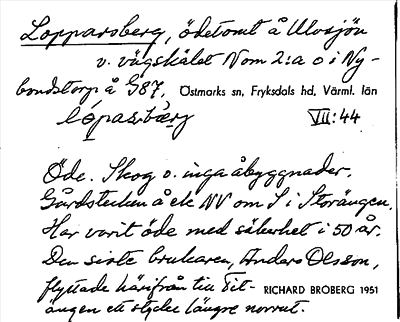 Lopparsberg, ödetomt å Ulvsjön
v. vägskälet N om 2:a o i Ny-
bondstorp å G87, Östmarks sn, Fryksdals hd, Värml. län
VII:44
Öde. Skog o. inga åbyggnader.
Gårdstecken å ek NV om S i Storängen.
Har varit öde med säkerhet i 50 år.
Den siste brukaren, Anders Olsson,
flyttade härifrån till Tit-
ängen ett stycke längre norrut.
RICHARD BROBERG 1951